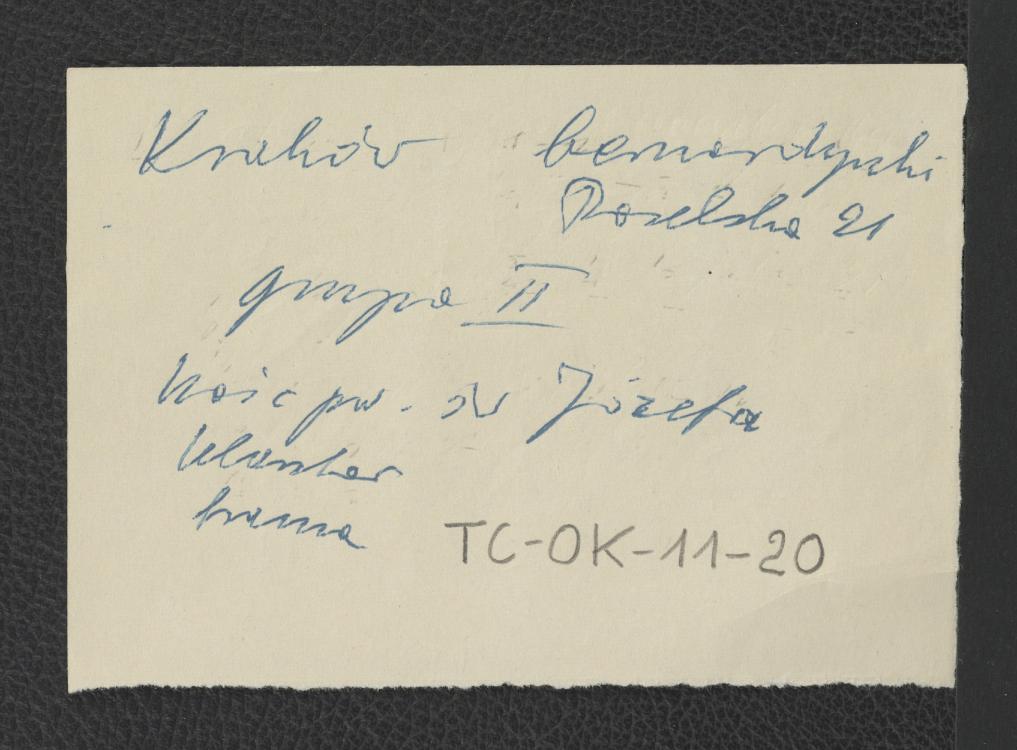 Kraków bernardynki
Poselska 21
grupa II
kośc pw. św Józefa
klasztor
brama
TC-OK-11-20